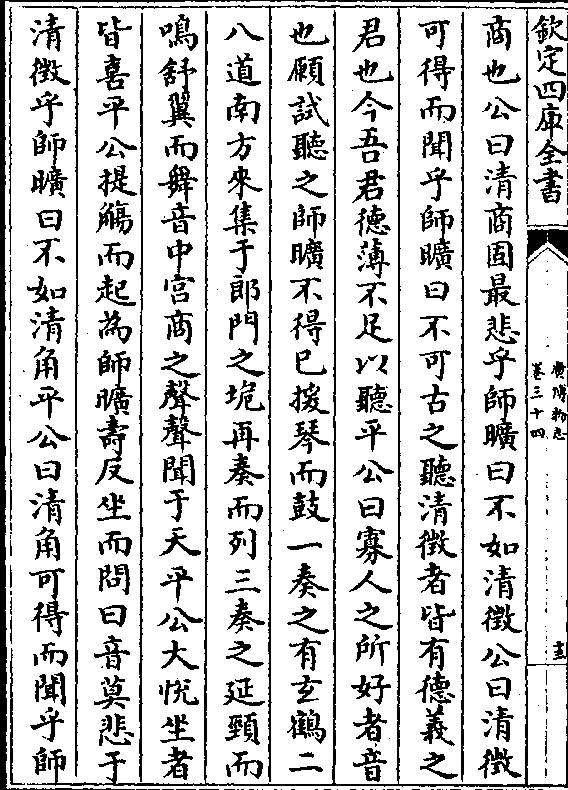 欽定四庫全書
廣博物志
卷三十四
商也公曰清商固最悲乎師曠曰不如清徵公曰清徵
可得而聞乎師曠曰不可古之聽清徵者皆有德義之
君也今吾君德薄不足以聽平公曰寡人之所好者音
也願試聽之師曠不得已援琴而鼓一奏之有玄鶴二
八道南方來集于郎門之垝再奏而列三奏之延頸而
鳴舒翼而舞音中宫商之聲聲聞于天平公大悦坐者
皆喜平公提觴而起為師曠壽反坐而問曰音莫悲于
清徵乎師曠曰不如清角平公曰清角可得而聞乎師